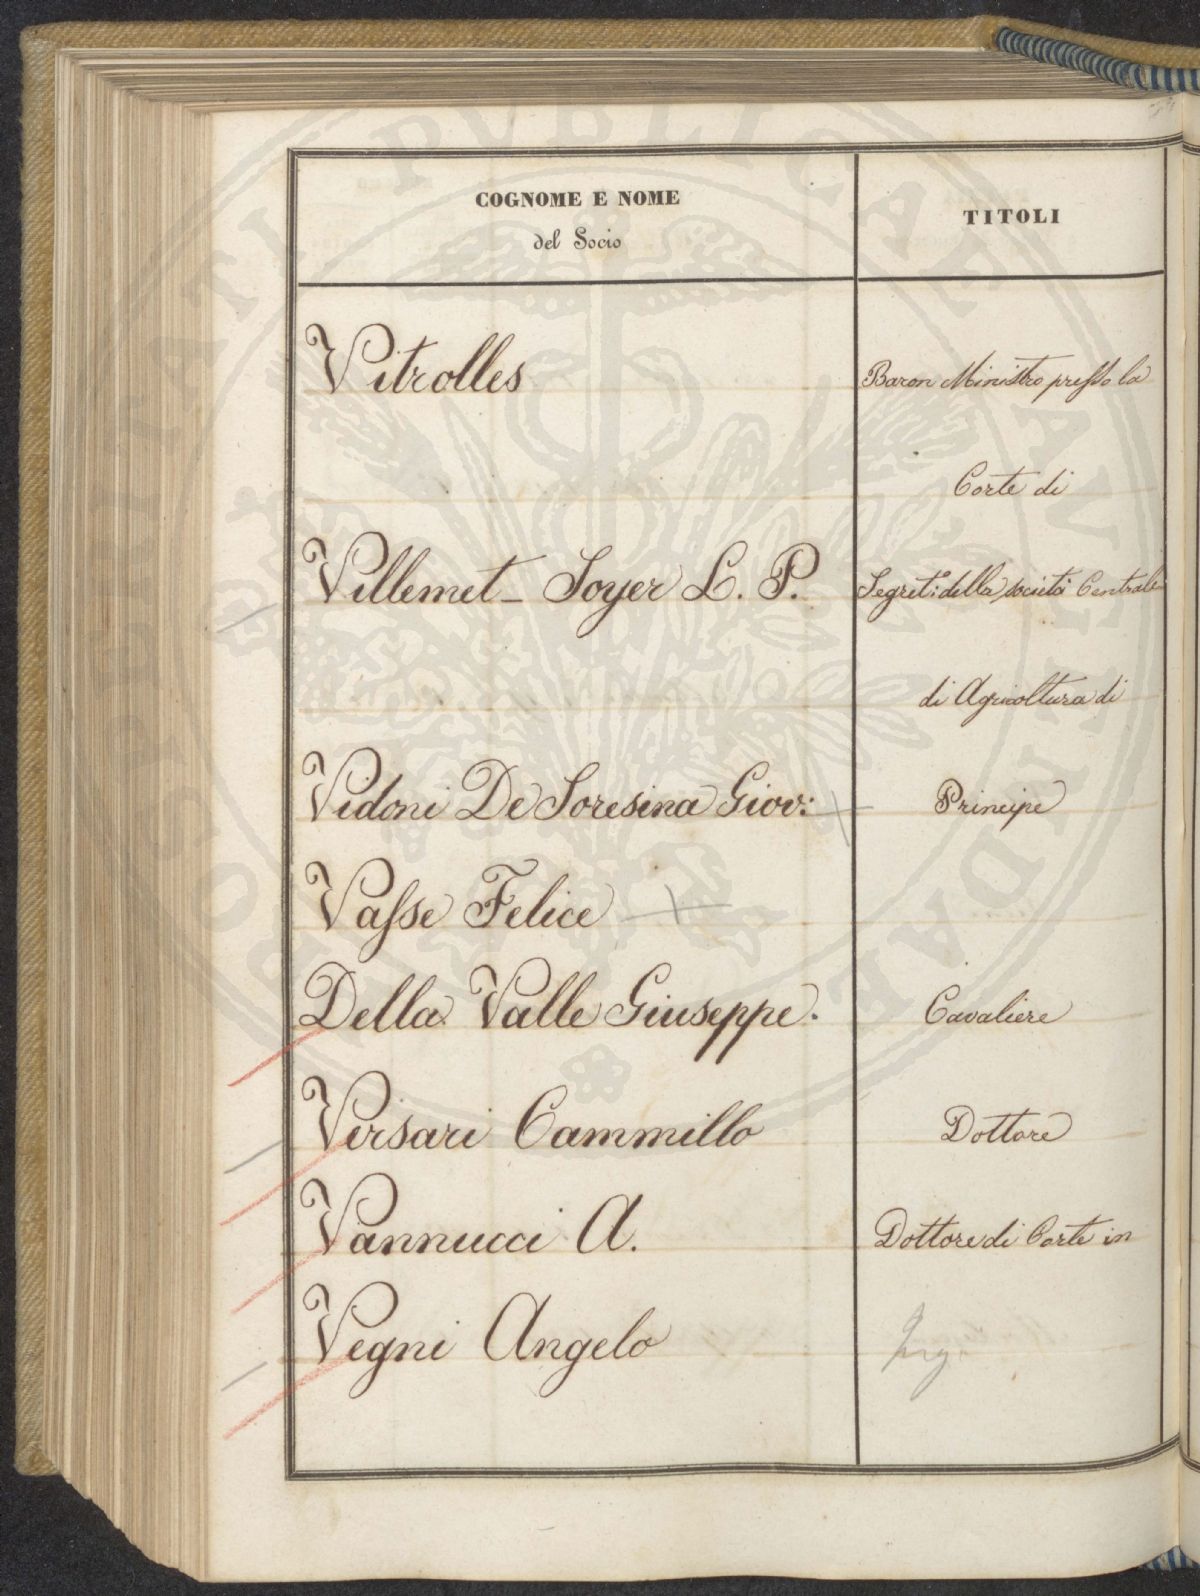 COGNOME E NOME
del Socio
TITOLI
Vitrolles
Baron Ministro presso la
Corte di
Villemet - Soyer L. P.
Segret: della società Centrale
di Agricoltura di
Vidoni De Soresina Giov:
Principe
Vasse Felice
Della Valle Giuseppe.
Cavaliere
Versari Cammillo
Dottore
Vannucci A.
Dottore di Corte in
Vegni Angelo
Ing.